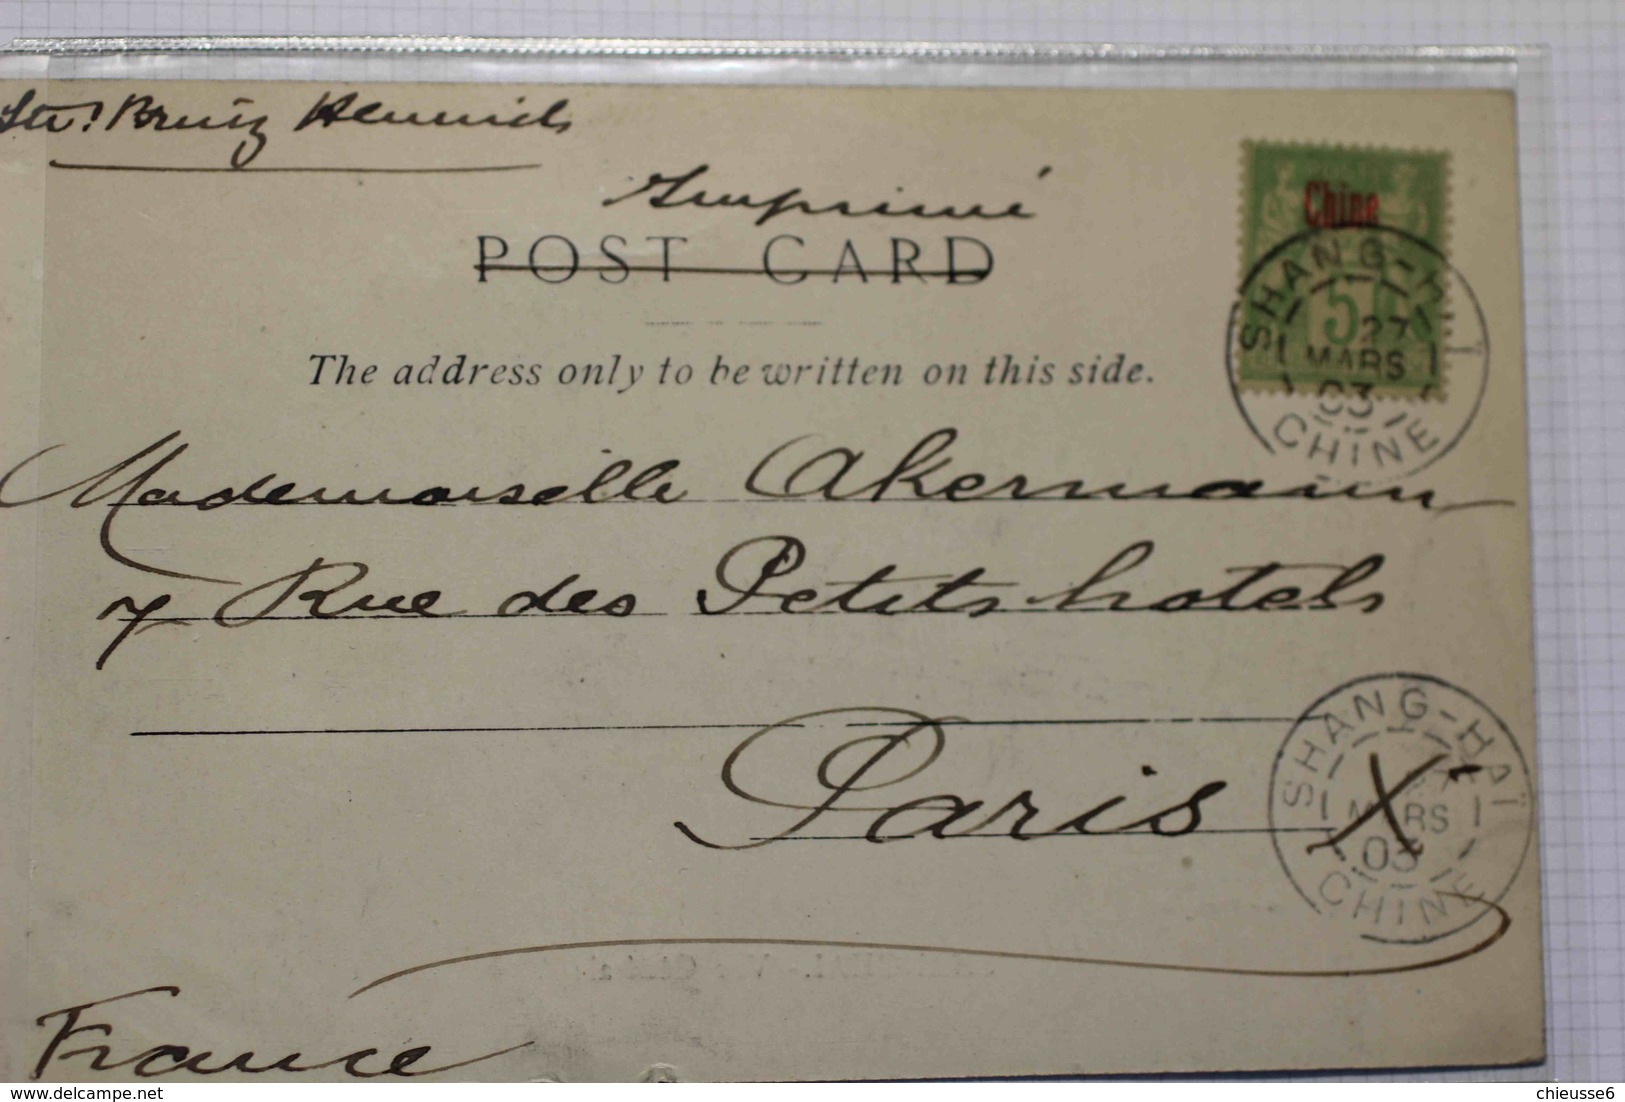 Str. Prinz Heinrich
Imprimé
POST CARD
The address only to be written on this side.
Chine
5
SHANG-HAÏ
27
MARS
03
CHINE
Mademoiselle Akermann
7 Rue des Petits hotels
Paris
SHANG-HAÏ
MARS
03
CHINE
France
delcampe.net
chieusse6